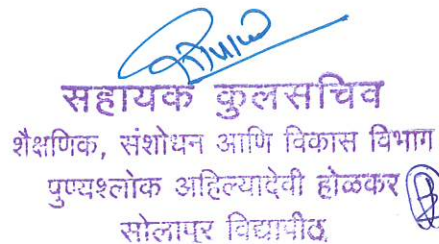 सहायक कुलसचिव
शैक्षणिक, संशोधन आणि विकास विभाग
पुण्यश्लोक अहिल्यादेवी होळकर
सोलापूर विद्यापीठ